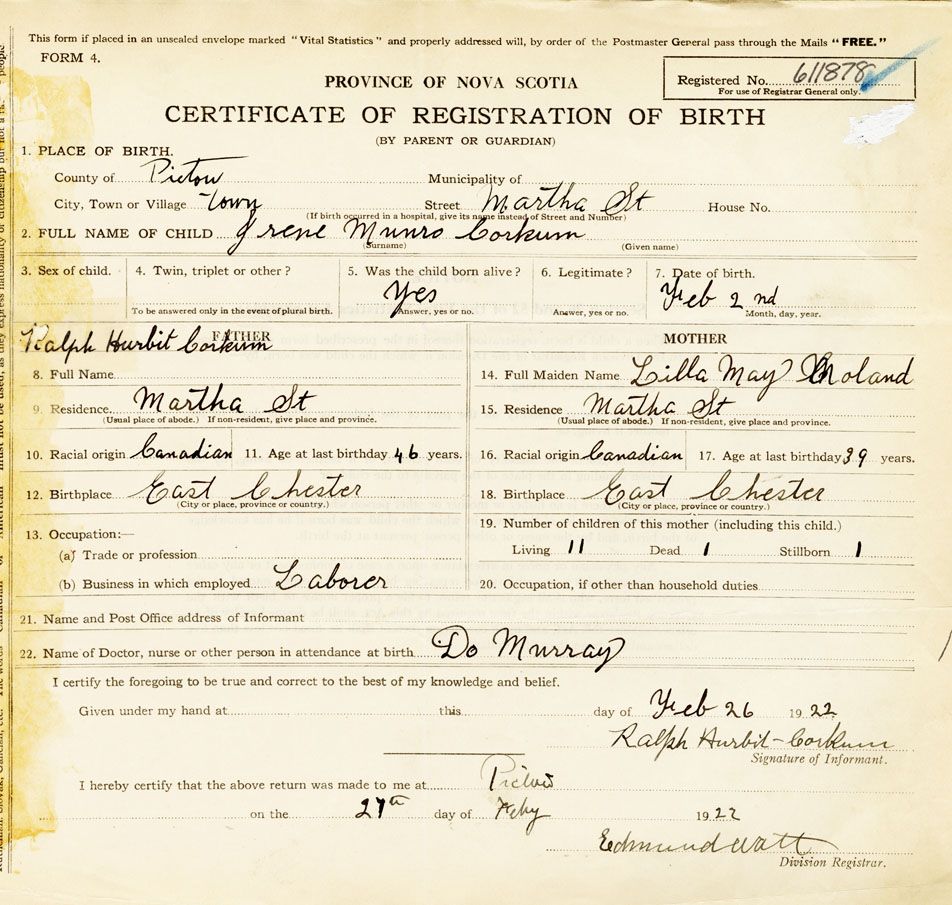 This form if placed in an unsealed envelope marked "Vital Statistics" and properly addressed will, by order of the Postmaster General pass through the Mails "FREE."
FORM 4.
Registered No. 611878
For use of Registrar General only.
PROVINCE OF NOVA SCOTIA
CERTIFICATE OF REGISTRATION OF BIRTH
(BY PARENT OR GUARDIAN)
1. PLACE OF BIRTH.
County of Pictou Municipality of
City, Town or Village Town Street Martha St House No.
(If birth occurred in a hospital, give its name instead of Street and Number)
2. FULL NAME OF CHILD Irene Munro Corkum
(Surname) (Given name)
3. Sex of child. 4. Twin, triplet or other? 5. Was the child born alive? 6. Legitimate? 7. Date of birth.
Yes Feb 2nd
To be answered only in the event of plural birth. Answer, yes or no. Answer, yes or no. Month, day, year.
FATHER MOTHER
Ralph Hurbit Corkum
8. Full Name 14. Full Maiden Name Lilla May
9. Residence Martha St 15. Residence Martha St
(Usual place of abode.) If non-resident, give place and province. (Usual place of abode.) If non-resident, give place and province.
10. Racial origin Canadian 11. Age at last birthday 46 years. 16. Racial origin Canadian 17. Age at last birthday 39 years.
12. Birthplace East Chester 18. Birthplace East Chester
(City or place, province or country.) (City or place, province or country.)
13. Occupation:— 19. Number of children of this mother (including this child.)
(a) Trade or profession Living 11 Dead 1 Stillborn 1
(b) Business in which employed Laborer 20. Occupation, if other than household duties
21. Name and Post Office address of Informant
22. Name of Doctor, nurse or other person in attendance at birth Do Murray
I certify the foregoing to be true and correct to the best of my knowledge and belief.
Given under my hand at this day of Feb 26 1922
Ralph Hurbit Corkum
Signature of Informant.
I hereby certify that the above return was made to me at Pictou
on the 27th day of Feby 1922
Edmund Watt
Division Registrar.